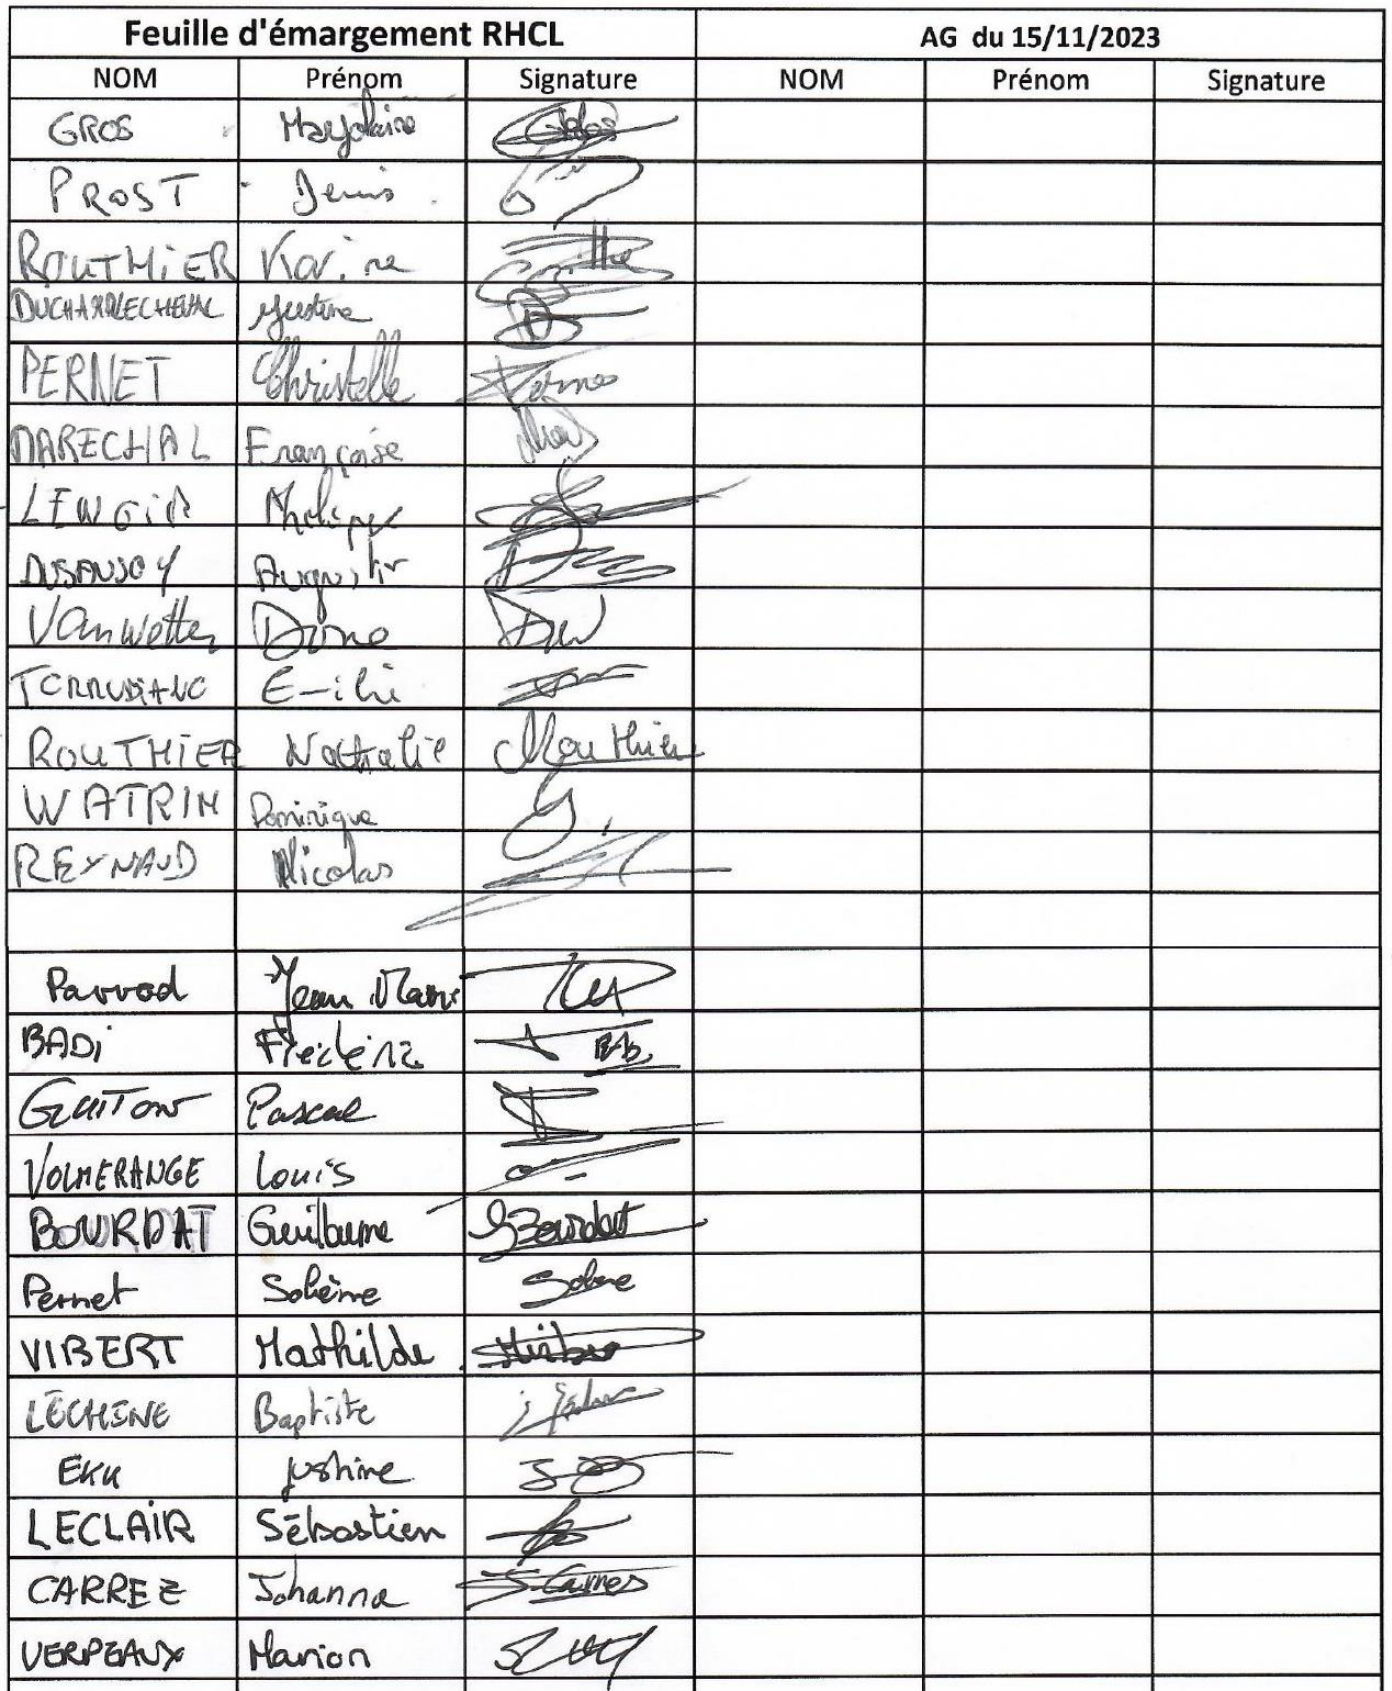 Feuille d'émargement RHCL AG du 15/11/2023
NOM Prénom Signature NOM Prénom Signature
GROS Marjolaine
PROST Denis
ROUTHIER Karine
Justine
PERNET Christelle
MARECHAL Françoise
Philippe
Augustin
Vanwetter
Emilie
ROUTHIER Nathalie
WATRIN Dominique
REYNAUD Nicolas
Parrod Jean Marie
BADi Frédéric
GUITON Pascal
VOLMERANGE Louis
BOURDAT Guillaume GBourdat
Pernet Solène Solene
VIBERT Mathilde
LÉCHINE Baptiste
EKU Justine
LECLAIR Sébastien
CARREZ Johanna
VERPEAUX Marion